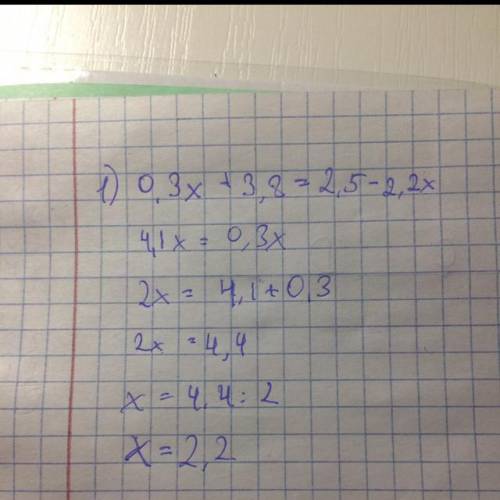 1) 0,3x + 3,8 = 2,5 - 2,2x
4,1x = 0,3x
2x = 4,1 + 0,3
2x = 4,4
x = 4,4 : 2
x = 2,2